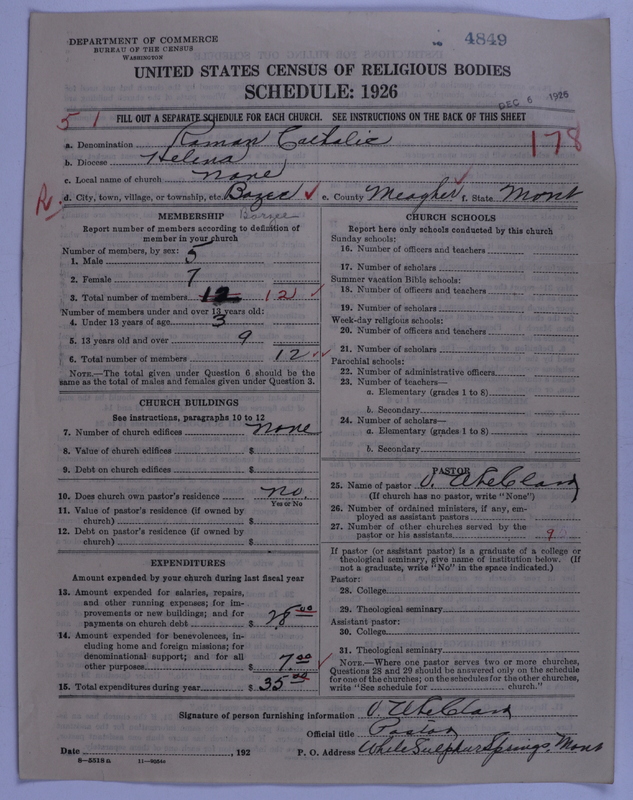 DEPARTMENT OF COMMERCE
BUREAU OF THE CENSUS
WASHINGTON
4849
UNITED STATES CENSUS OF RELIGIOUS BODIES
SCHEDULE: 1926
DEC 6 1926
5 1
FILL OUT A SEPARATE SCHEDULE FOR EACH CHURCH. SEE INSTRUCTIONS ON THE BACK OF THIS SHEET
178
a. Denomination Roman Catholic
b. Diocese Helena
c. Local name of church none
d. City, town, village, or township, etc. e. County Meagher f. State Mont
MEMBERSHIP
Report number of members according to definition of
member in your church
Number of members, by sex:
1. Male 5
2. Female 7
3. Total number of members 12 12
Number of members under and over 13 years old:
4. Under 13 years of age 3
5. 13 years old and over 9
6. Total number of members 12
NOTE.—The total given under Question 6 should be the
same as the total of males and females given under Question 3.
CHURCH BUILDINGS
See instructions, paragraphs 10 to 12
7. Number of church edifices none
8. Value of church edifices $
9. Debt on church edifices $
10. Does church own pastor's residence no
Yes or No
11. Value of pastor's residence (if owned by
church) $
12. Debt on pastor's residence (if owned by
church) $
EXPENDITURES
Amount expended by your church during last fiscal year
13. Amount expended for salaries, repairs,
and other running expenses; for im-
provements or new buildings; and for
payments on church debt $ 28.00
14. Amount expended for benevolences, in-
cluding home and foreign missions; for
denominational support; and for all
other purposes $ 7.00
15. Total expenditures during year $ 35.00
CHURCH SCHOOLS
Report here only schools conducted by this church
Sunday schools:
16. Number of officers and teachers
17. Number of scholars
Summer vacation Bible schools:
18. Number of officers and teachers
19. Number of scholars
Week-day religious schools:
20. Number of officers and teachers
21. Number of scholars
Parochial schools:
22. Number of administrative officers
23. Number of teachers—
a. Elementary (grades 1 to 8)
b. Secondary
24. Number of scholars—
a. Elementary (grades 1 to 8)
b. Secondary
PASTOR
25. Name of pastor
(If church has no pastor, write "None")
26. Number of ordained ministers, if any, em-
ployed as assistant pastors
27. Number of other churches served by the
pastor or his assistants 9
If pastor (or assistant pastor) is a graduate of a college or
theological seminary, give name of institution below. (If
not a graduate, write "No" in the space indicated.)
Pastor:
28. College
29. Theological seminary
Assistant pastor:
30. College
31. Theological seminary
NOTE.—Where one pastor serves two or more churches,
Questions 28 and 29 should be answered only on the schedule
for one of the churches; on the schedules for the other churches,
write "See schedule for church."
Signature of person furnishing information
Official title Pastor
Date , 192 P. O. Address White Sulphur Springs, Mont
8—5518a 11—9554c